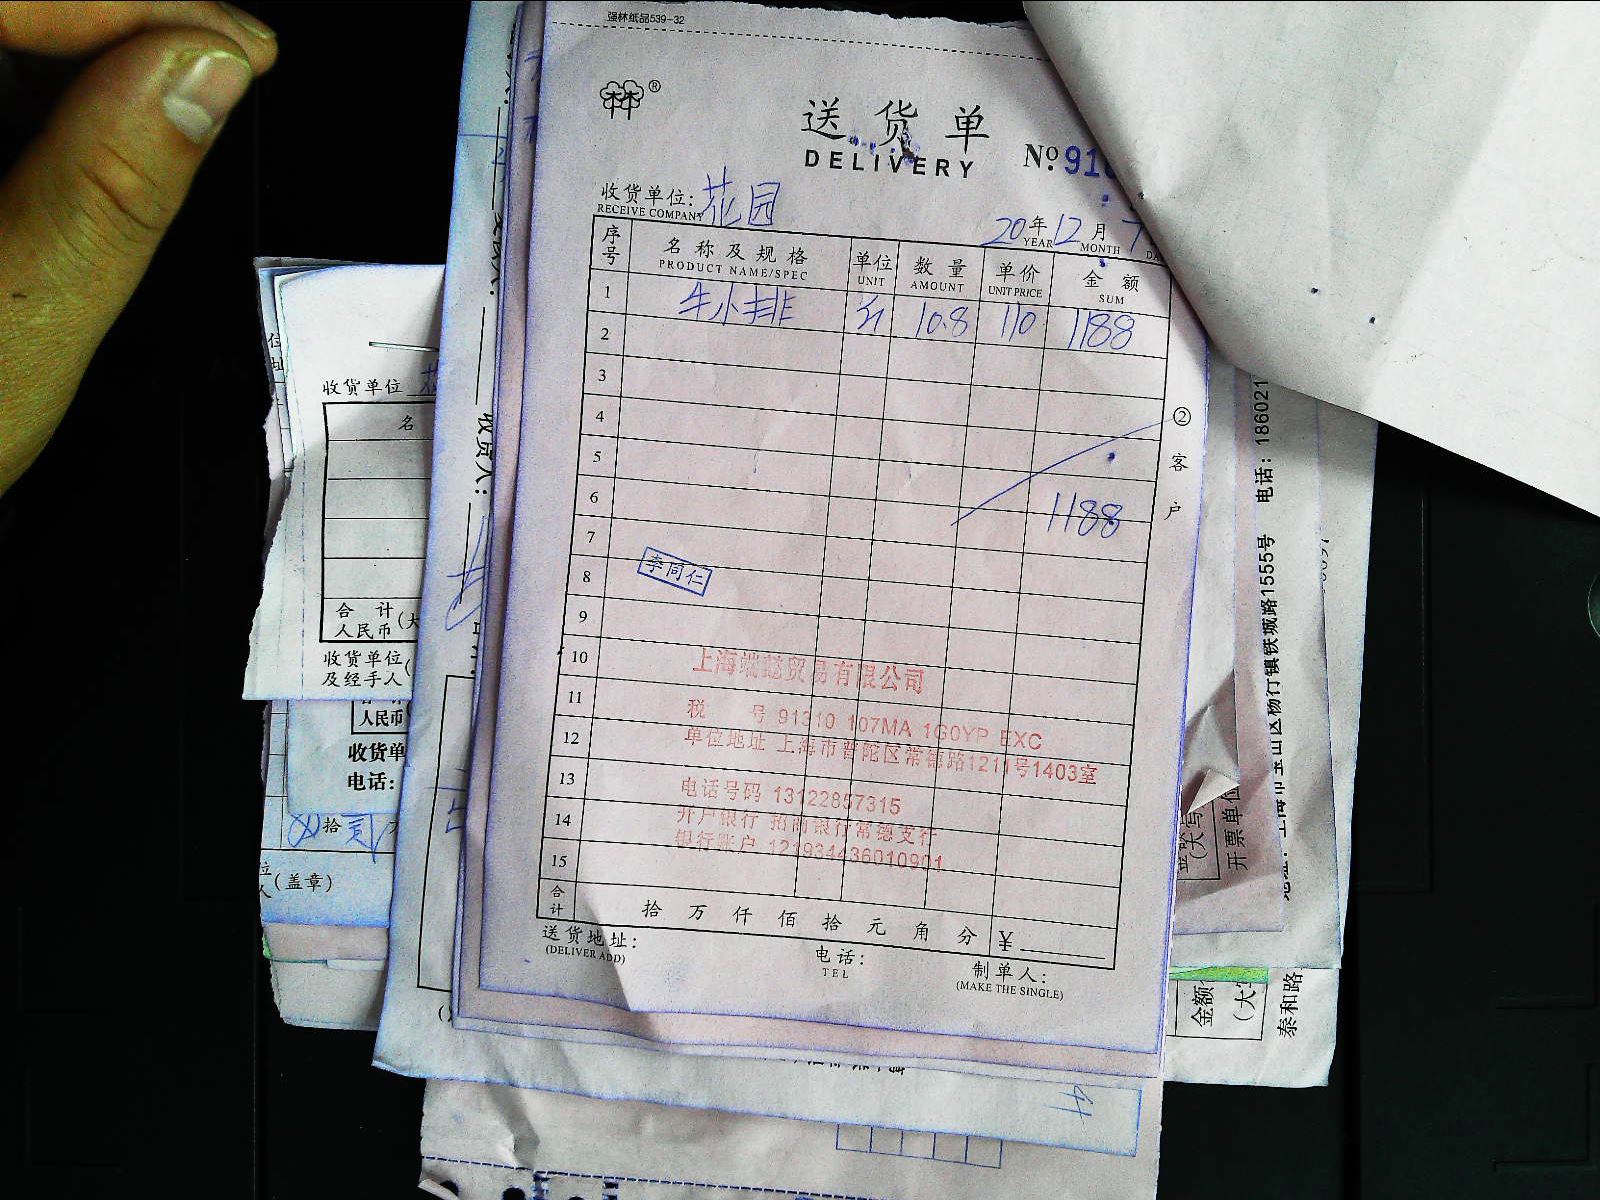 强林纸品539-32
林®
送货单
DELIVERY
No.91
收货单位: 花园
RECEIVE COMPANY
20年12月7
YEAR MONTH DA
序号 名称及规格 单位 数量 单价 金额
PRODUCT NAME/SPEC UNIT AMOUNT UNIT PRICE SUM
1 牛小排 斤 10.8 110 1188
2
3
4
5
6 1188
7
8
9
10
11
12
13
14
15
②客户
李同仁
上海端懿贸易有限公司
税 号 91310 107MA 1G0YP EXC
单位地址 上海市普陀区常德路1211号1403室
电话号码 13122857315
开户银行 招商银行常德支行
银行账户 121934436010901
合计 拾 万 仟 佰 拾 元 角 分 ¥
送货地址:
(DELIVER ADD)
电话:
TEL
制单人:
(MAKE THE SINGLE)
收货单位 花
名
合 计
人民币(大
收货单位
及经手人(
人民币
收货单
电话:
拾
(盖章)
收货人:
杨行镇铁城路1555号 电话: 186021
(大写)
开票单位
金额
(大
泰和路